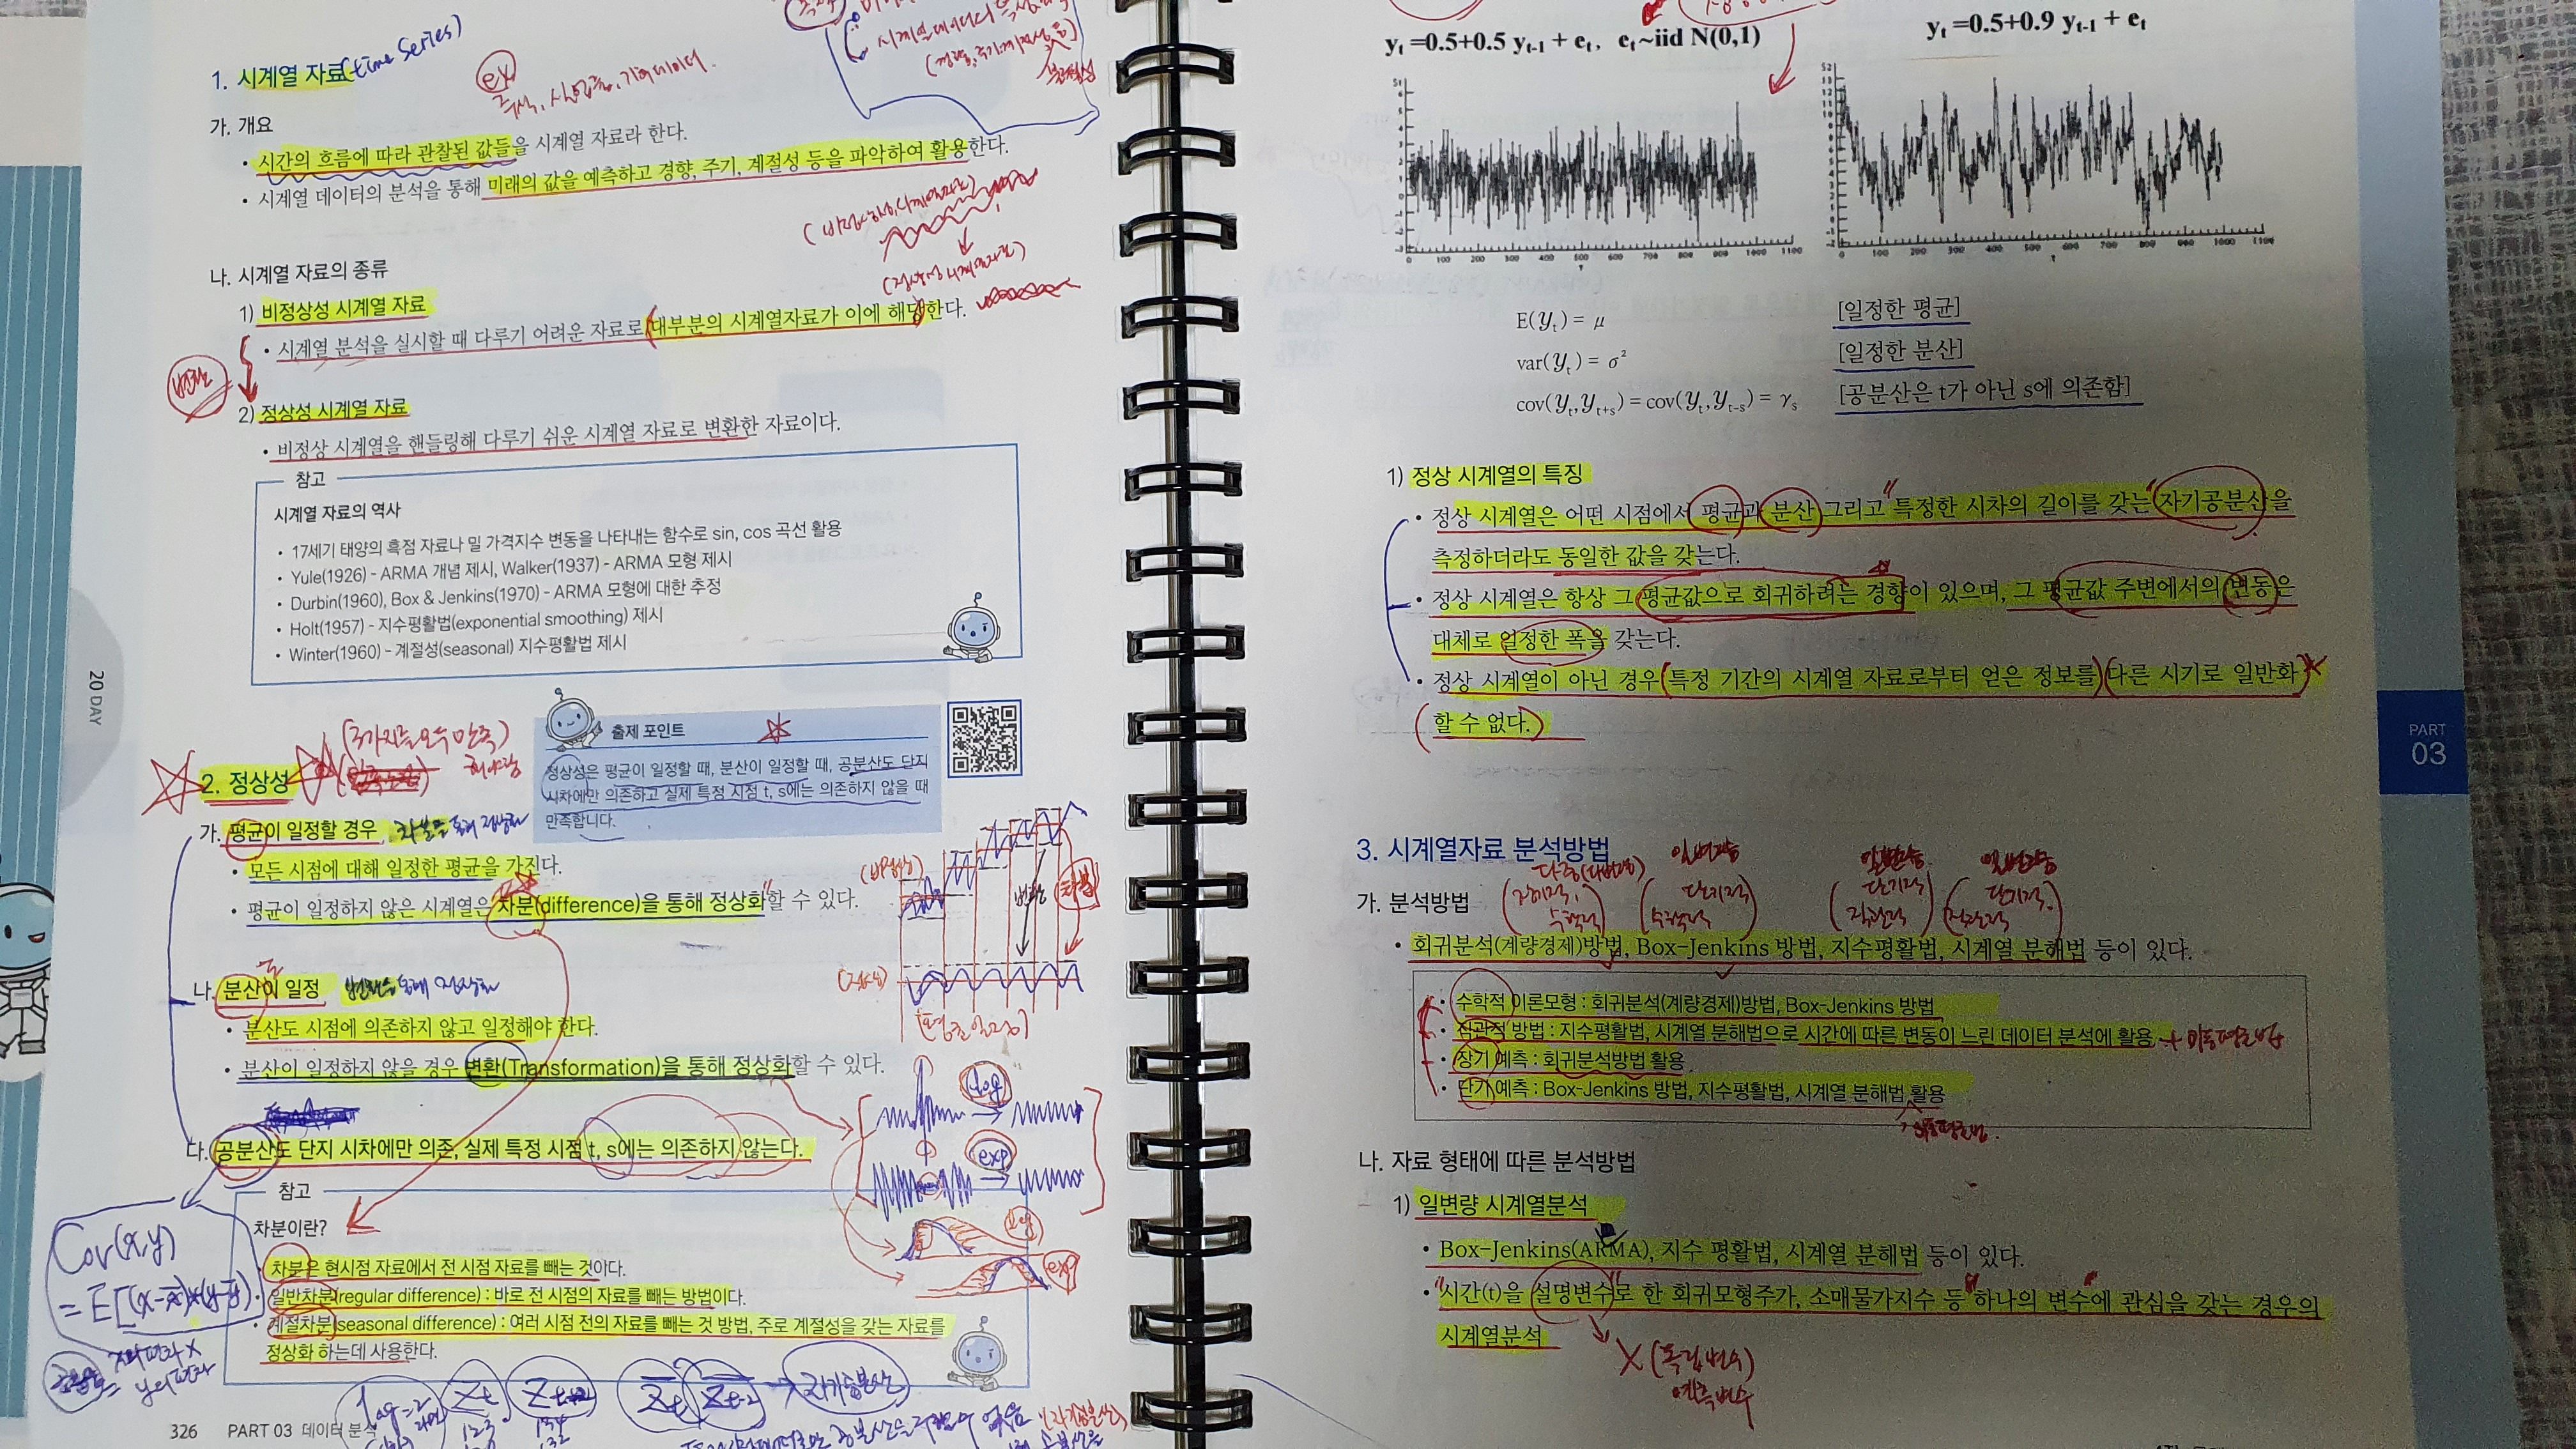 1. 시계열 자료 (time Series)
ex
가. 개요
• 시간의 흐름에 따라 관찰된 값들을 시계열 자료라 한다.
• 시계열 데이터의 분석을 통해 미래의 값을 예측하고 경향, 주기, 계절성 등을 파악하여 활용한다.
나. 시계열 자료의 종류
1) 비정상성 시계열 자료
• 시계열 분석을 실시할 때 다루기 어려운 자료로 대부분의 시계열자료가 이에 해당한다.
2) 정상성 시계열 자료
• 비정상 시계열을 핸들링해 다루기 쉬운 시계열 자료로 변환한 자료이다.
참고
시계열 자료의 역사
• 17세기 태양의 흑점 자료나 밀 가격지수 변동을 나타내는 함수로 sin, cos 곡선 활용
• Yule(1926) - ARMA 개념 제시, Walker(1937) - ARMA 모형 제시
• Durbin(1960), Box & Jenkins(1970) - ARMA 모형에 대한 추정
• Holt(1957) - 지수평활법(exponential smoothing) 제시
• Winter(1960) - 계절성(seasonal) 지수평활법 제시
20 DAY
(3가지를 모두 만족)
해야함
2. 정상성
출제 포인트
정상성은 평균이 일정할 때, 분산이 일정할 때, 공분산도 단지
시차에만 의존하고 실제 특정 시점 t, s에는 의존하지 않을 때
만족합니다.
가. 평균이 일정할 경우 차분을 통해 정상화
• 모든 시점에 대해 일정한 평균을 가진다.
• 평균이 일정하지 않은 시계열은 차분(difference)을 통해 정상화할 수 있다.
(비정상)
변환
차분
(정상)
나. 분산이 일정 변환을 통해 정상화
• 분산도 시점에 의존하지 않고 일정해야 한다.
• 분산이 일정하지 않을 경우 변환(Transformation)을 통해 정상화할 수 있다.
log
exp
다. 공분산도 단지 시차에만 의존, 실제 특정 시점 t, s에는 의존하지 않는다.
참고
차분이란?
• 차분은 현시점 자료에서 전 시점 자료를 빼는 것이다.
• 일반차분(regular difference) : 바로 전 시점의 자료를 빼는 방법이다.
• 계절차분(seasonal difference) : 여러 시점 전의 자료를 빼는 것 방법, 주로 계절성을 갖는 자료를
정상화 하는데 사용한다.
log
exp
Cov(x,y)
= E[(x-x̄)×(y-ȳ)]
공분산 = x의 편차 ×
y의 편차
lag=2
Zt
자기공분산
326 PART 03 데이터 분석
yt =0.5+0.5 yt-1 + et, et~iid N(0,1)
yt =0.5+0.9 yt-1 + et
0 100 200 300 400 500 600 700 800 900 1000 1100
0 100 200 300 400 500 600 700 800 900 1000 1100
E(yt) = μ [일정한 평균]
var(yt) = σ² [일정한 분산]
cov(yt, yt+s) = cov(yt, yt-s) = γs [공분산은 t가 아닌 s에 의존함]
1) 정상 시계열의 특징
• 정상 시계열은 어떤 시점에서 평균과 분산 그리고 특정한 시차의 길이를 갖는 자기공분산을
측정하더라도 동일한 값을 갖는다.
• 정상 시계열은 항상 그 평균값으로 회귀하려는 경향이 있으며, 그 평균값 주변에서의 변동은
대체로 일정한 폭을 갖는다.
• 정상 시계열이 아닌 경우 특정 기간의 시계열 자료로부터 얻은 정보를 다른 시기로 일반화
할 수 없다.
PART
03
3. 시계열자료 분석방법
가. 분석방법
• 회귀분석(계량경제)방법, Box-Jenkins 방법, 지수평활법, 시계열 분해법 등이 있다.
• 수학적 이론모형 : 회귀분석(계량경제)방법, Box-Jenkins 방법
• 직관적 방법 : 지수평활법, 시계열 분해법으로 시간에 따른 변동이 느린 데이터 분석에 활용 + 이동평균법
• 장기 예측 : 회귀분석방법 활용
• 단기 예측 : Box-Jenkins 방법, 지수평활법, 시계열 분해법 활용
이동평균법.
나. 자료 형태에 따른 분석방법
1) 일변량 시계열분석
• Box-Jenkins(ARMA), 지수 평활법, 시계열 분해법 등이 있다.
• 시간(t)을 설명변수로 한 회귀모형주가, 소매물가지수 등 하나의 변수에 관심을 갖는 경우의
시계열분석
X (독립변수)
예측변수